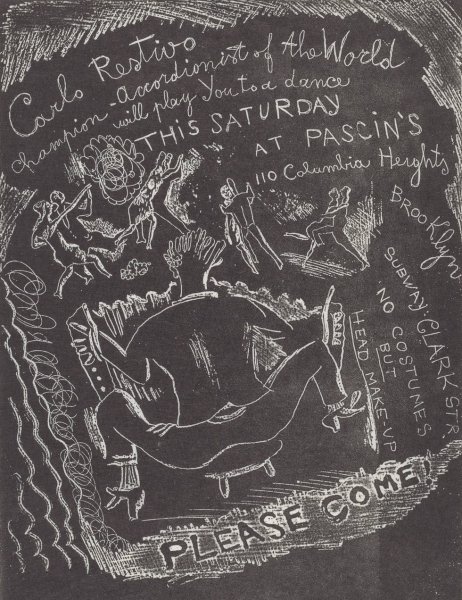 Carlo Restivo
champion-accordionist of the World
will play You to a dance
THIS SATURDAY
AT PASCIN'S
110 Columbia Heights
BROOKlyn
SUBWAY: CLARK STR.
NO COSTUNES
BUT
HEAD MAKE-UP
PLEASE COME!